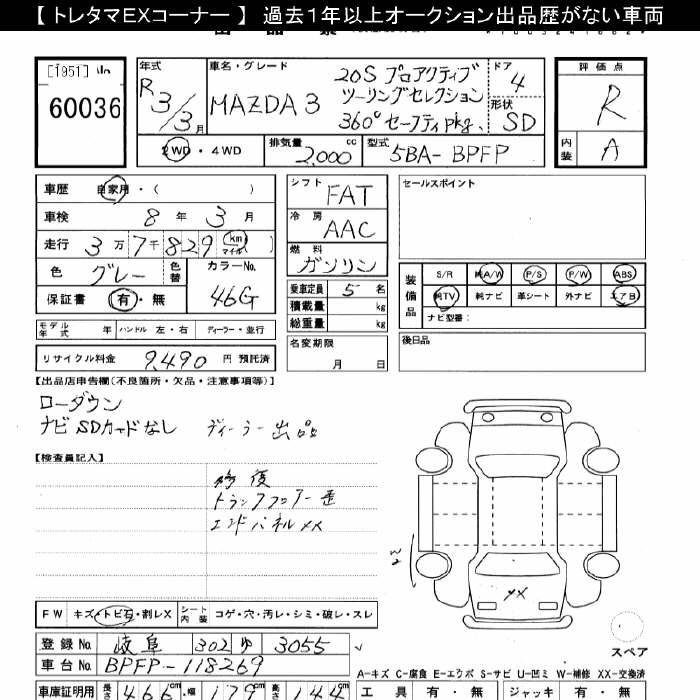 【 トレタマEXコーナー 】 過去１年以上オークション出品歴がない車両
[1951]
60036
年式 車名・グレード ドア 評価点
R 3/3月 MAZDA3 20S プロアクティブ 4 R
ツーリングセレクション 形状
360°セーフティpkg. SD
2WD・4WD 排気量 2,000 cc 型式 5BA-BPFP 内装 A
車歴 自家用・( )
車検 8年 3月
走行 3万7千829 km マイル
色 グレー 色替 カラーNo. 46G
保証書 有・無
シフト FAT
冷房 AAC
燃料 ガソリン
乗車定員 5名
積載量 kg
総重量 kg
セールスポイント
装備品 S/R 純A/W P/S P/W ABS
純TV 純ナビ 革シート 外ナビ エアB
ナビ型番:
モデル年式 年 ハンドル 左・右 ディーラー・並行
名変期限 月 日
後日品
リサイクル料金 9,490 円 預託済
【出品店申告欄(不良箇所・欠品・注意事項等)】
ローダウン
ナビSDカードなし ディーラー出品
【検査員記入】
修復
トランクフロアー歪
エンドパネルXX
W2
XX
FW キズ・トビ石・割レX シート内装 コゲ・穴・汚レ・シミ・破レ・スレ
スペア
登録No. 岐阜 302 ゆ 3055
車台No. BPFP-118269
A-キズ C-腐食 E-エクボ S-サビ U-凹ミ W-補修 XX-交換済
車庫証明用 長さ 466cm 幅 179cm 高さ 144cm
工具 有・無 ジャッキ 有・無